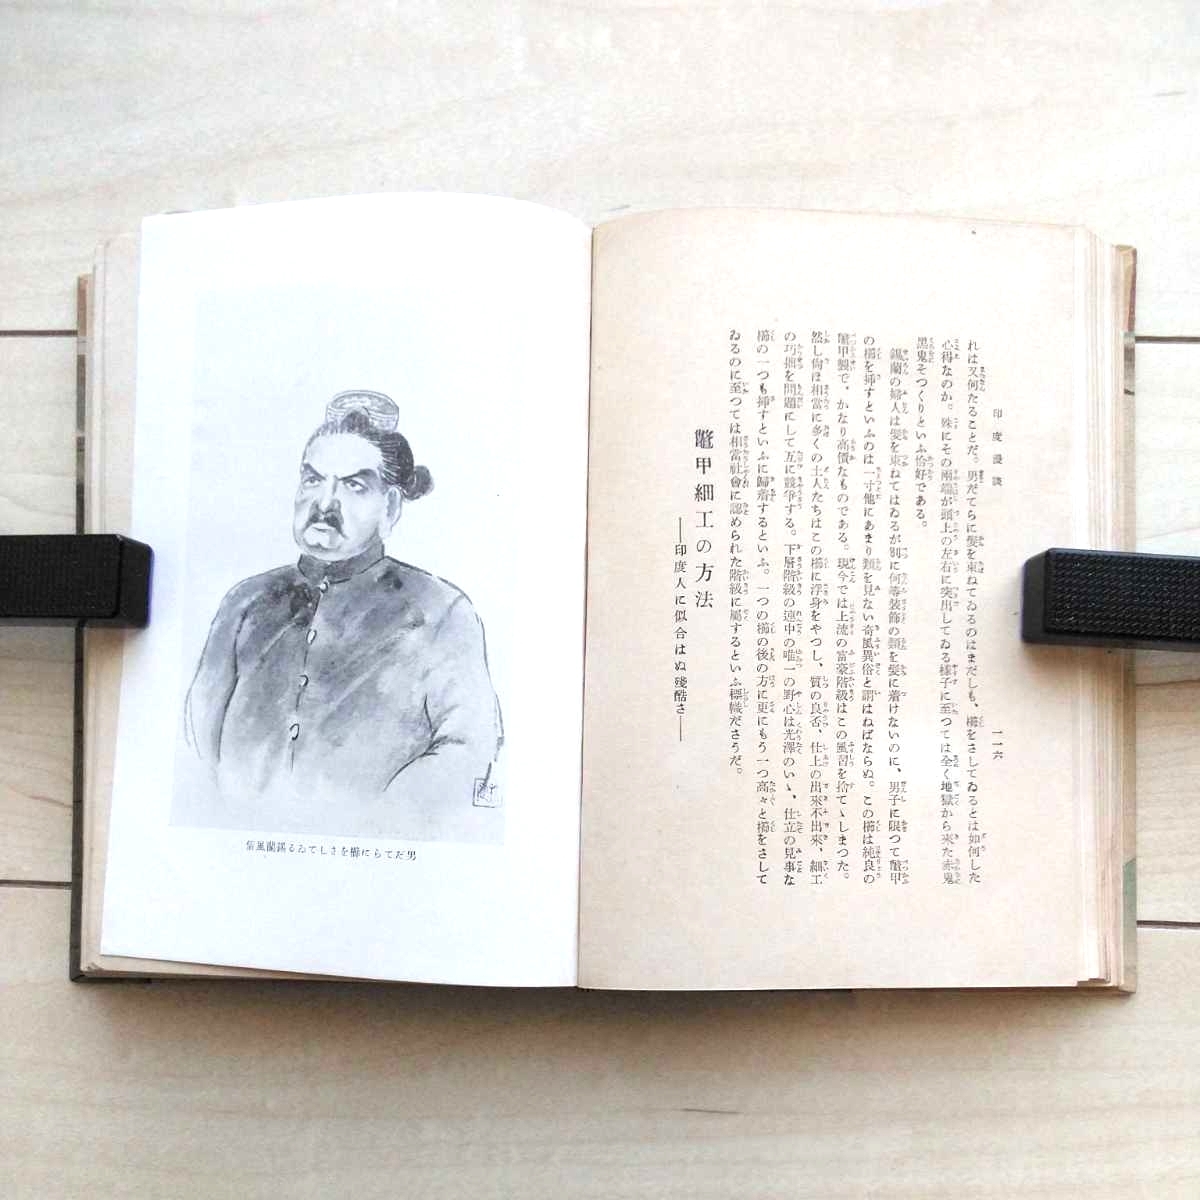 印度漫談
一一六
れは又何たることだ。男だてらに髪を束ねてゐるのはまだしも、櫛をさしてゐるとは如何した
心得なのか。殊にその兩端が頭上の左右に突出してゐる樣子に至つては全く地獄から來た赤鬼
黑鬼そつくりといふ恰好である。
錫蘭の婦人は髪を束ねてはゐるが別に何等裝飾の類を髪に着けないのに、男子に限つて鼈甲
の櫛を挿すといふのは一寸他にあまり類を見ない奇風異俗と謂はねばならぬ。この櫛は純良の
鼈甲製で、かなり高價なものである。現今では上流の富豪階級はこの風習を捨てゝしまつた。
然し尙ほ相當に多くの土人たちはこの櫛に浮身をやつし、質の良否、仕上の出來不出來、細工
の巧拙を問題にして互に競爭する。下層階級の連中の唯一の野心は光澤のいゝ、仕立の見事な
櫛の一つも挿すといふに歸着するといふ。一つの櫛の後の方に更にもう一つ高々と櫛をさして
ゐるのに至つては相當社會に認められた階級に屬するといふ標幟ださうだ。
鼈甲細工の方法
――印度人に似合はぬ殘酷さ――
男だてらに櫛をさしてゐる錫蘭風俗